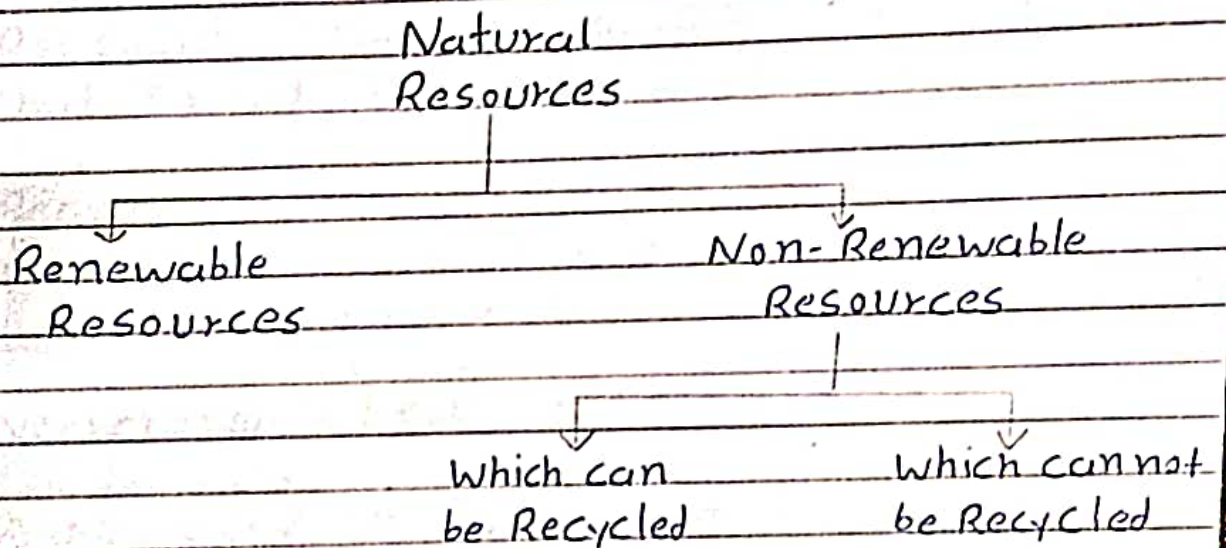 Natural
Resources
Renewable
Resources
Non-Renewable
Resources
Which can
be Recycled
Which can not
be Recycled